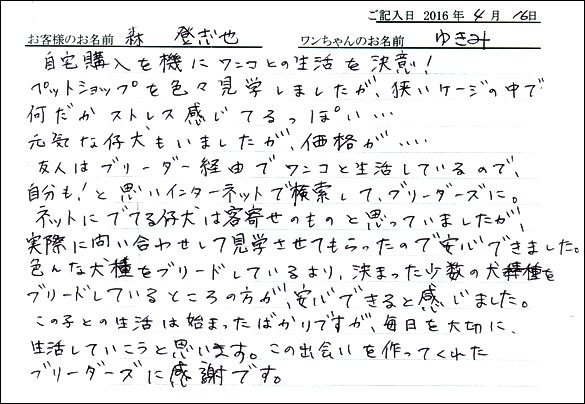 ご記入日 2016年 4月 16日
お客様のお名前 森 登志也 ワンちゃんのお名前 ゆきみ
自宅購入を機にワンコとの生活を決意!
ペットショップを色々見学しましたが、狭いケージの中で
何だかストレス感じてるっぽい…
元気な仔犬もいましたが、価格が….
友人はブリーダー経由でワンコと生活しているので、
自分も!と思いインターネットで検索して、ブリーダーズに。
ネットにでてる仔犬は客寄せのものと思っていましたが、
実際に問い合わせして見学させてもらったので安心できました。
色んな犬種をブリードしているより、決まった少数の犬種を
ブリードしているところの方が、安心できると感じました。
この子との生活は始まったばかりですが、毎日を大切に、
生活していこうと思います。この出会いを作ってくれた
ブリーダーズに感謝です。